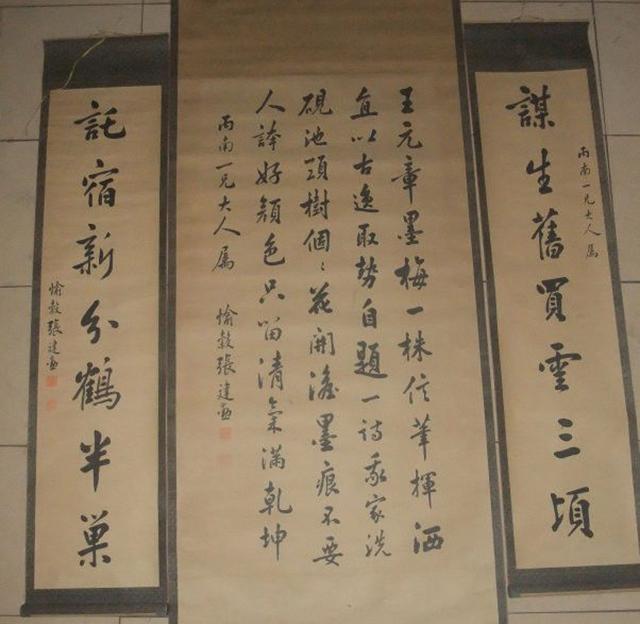 丙南一兄大人屬
謀生舊買雲三頃
王元章墨梅一株信筆揮洒
直以古逸取勢自題一詩我家洗
硯池頭樹個〻花開澹墨痕不要
人誇好顏色只留清氣滿乾坤
丙南一兄大人屬 愉穀張建勳
託宿新分鶴半巢
愉穀張建勳